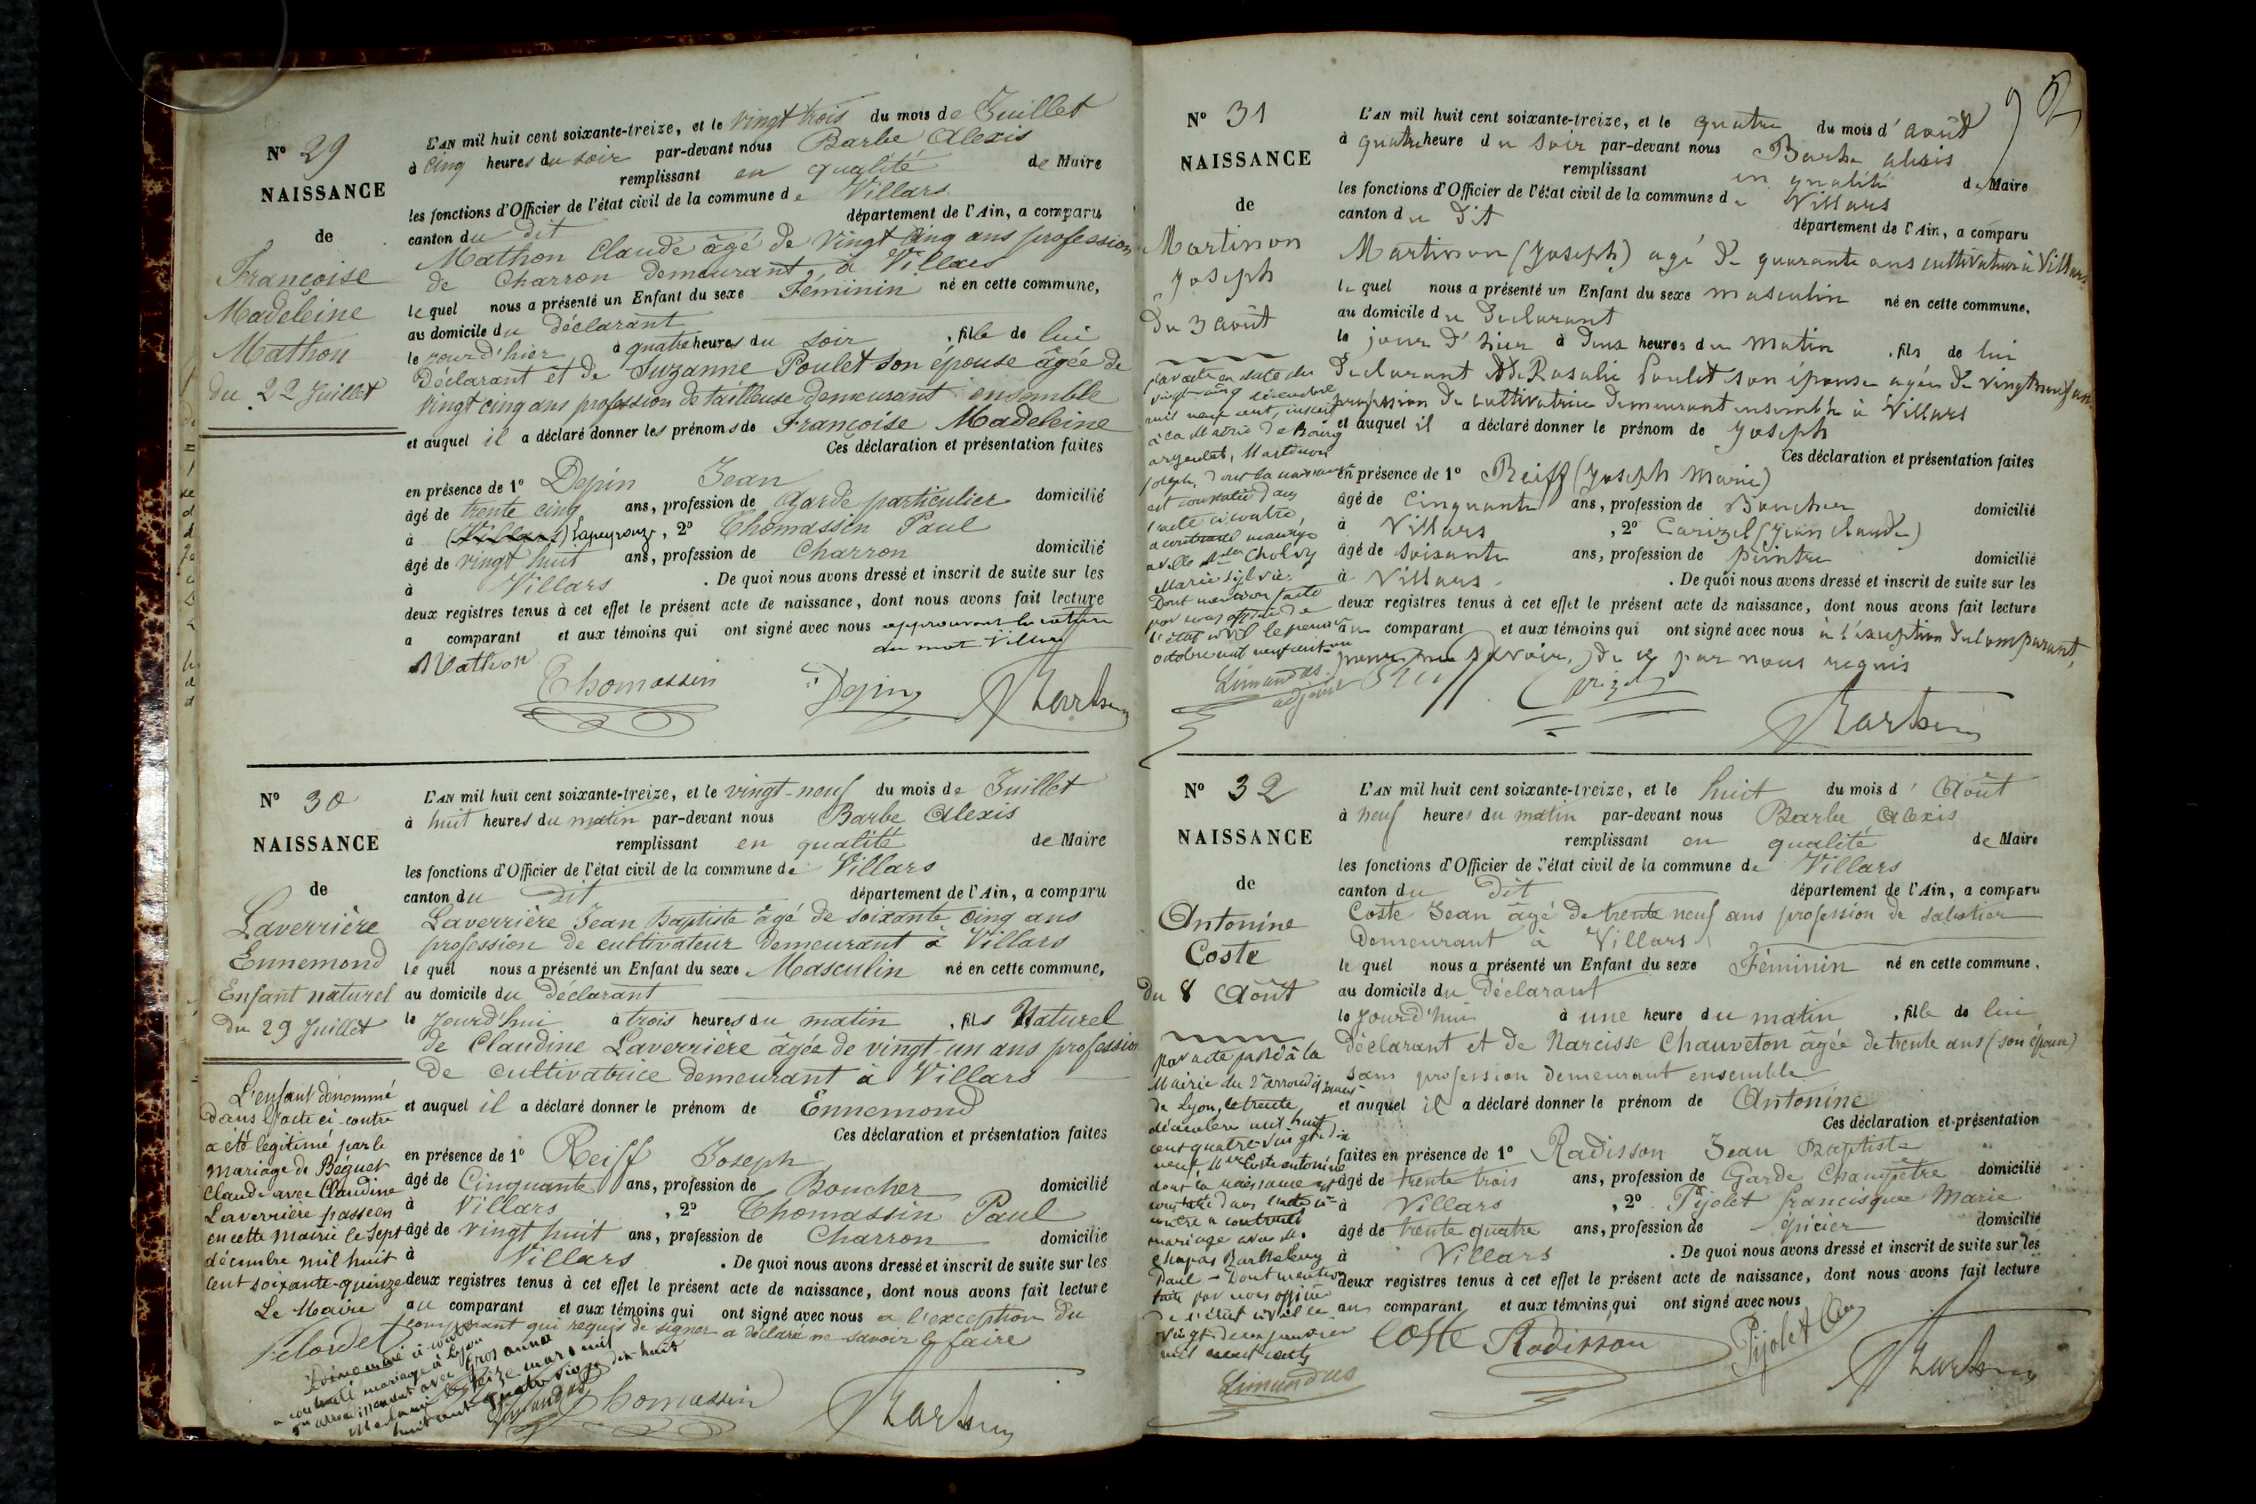 Nº 29
NAISSANCE
de
Françoise
Madeleine
Mathon
du 22 Juillet
L'AN mil huit cent soixante-treize, et le vingt trois du mois de Juillet
à cinq heures du soir par-devant nous Barbe Alexis
remplissant en qualité de Maire
les fonctions d'Officier de l'état civil de la commune de Villars
canton du dit département de l'Ain, a comparu
Mathon Claude âgé de vingt cinq ans profession
de Charron demeurant à Villars
le quel nous a présenté un Enfant du sexe Féminin né en cette commune,
au domicile du déclarant
le jourd'hier à quatre heures du soir , fille de lui
Déclarant et de Suzanne Poulet son épouse âgée de
vingt cinq ans profession de tailleuse demeurant ensemble
et auquel il a déclaré donner les prénoms de Françoise Madeleine
Ces déclaration et présentation faites
en présence de 1º Depin Jean
âgé de trente cinq ans, profession de Garde particulier domicilié
à (Villars) Lapeyrouze, 2º Thomassin Paul
âgé de vingt huit ans, profession de Charron domicilié
à Villars . De quoi nous avons dressé et inscrit de suite sur les
deux registres tenus à cet effet le présent acte de naissance, dont nous avons fait lecture
a comparant et aux témoins qui ont signé avec nous approuvant la rature
du mot Villars
Mathon
Thomassin Depin A Barbe
Nº 30
NAISSANCE
de
Laverrière
Ennemond
Enfant naturel
du 29 Juillet
L'enfant dénommé
dans l'acte ci-contre
a été légitimé par le
mariage de Béguet
Claude avec Claudine
Laverrière passé en
en cette Mairie le sept
décembre mil huit
cent soixante-quinze
Le Maire
L'AN mil huit cent soixante-treize, et le vingt-neuf du mois de Juillet
à huit heures du matin par-devant nous Barbe Alexis
remplissant en qualité de Maire
les fonctions d'Officier de l'état civil de la commune de Villars
canton du dit département de l'Ain, a comparu
Laverrière Jean Baptiste âgé de soixante cinq ans
profession de cultivateur demeurant à Villars
le quel nous a présenté un Enfant du sexe Masculin né en cette commune,
au domicile du Déclarant
le jourd'hui à trois heures du matin , fils Naturel
de Claudine Laverriere âgée de vingt-un ans profession
de cultivatrice demeurant à Villars
et auquel il a déclaré donner le prénom de Ennemond
Ces déclaration et présentation faites
en présence de 1º Reiff Joseph
âgé de Cinquante ans, profession de Boucher domicilié
à Villars , 2º Thomassin Paul
âgé de vingt huit ans, profession de Charron domicilié
à Villars . De quoi nous avons dressé et inscrit de suite sur les
deux registres tenus à cet effet le présent acte de naissance, dont nous avons fait lecture
au comparant et aux témoins qui ont signé avec nous a l'exception du
comparant qui requis de signer a déclaré ne savoir le faire
Thomassin A Barbe
Nº 31
NAISSANCE
de
Martinon
Joseph
Du 3 août
par acte en date du
vingt-cinq décembre
mil neuf cent, inscrit
à la Mairie de Bourg
argental, Martinon
Joseph, dont la naissance
est constatée dans
l'acte ci-contre,
a contracté mariage
avec Mlle Cholvy
Marie Sylvie.
Dont mention faite
par nous officier de
l'état civil le premier
octobre mil neuf cent un
Limandas
adjoint
L'AN mil huit cent soixante-treize, et le quatre du mois d'août
à quatre heure du soir par-devant nous Barbe alexis
remplissant en qualité de Maire
les fonctions d'Officier de l'état civil de la commune de Villars
canton du dit département de l'Ain, a comparu
Martinon (Joseph) agé de quarante ans cultivateur à Villars
le quel nous a présenté un Enfant du sexe masculin né en cette commune,
au domicile du Declarant
le jour d'hier à deux heures du matin , fils de lui
Declarant et de Rosalie Poulet son épouse agée de vingt neuf ans
profession de cultivatrice demeurant ensemble à Villars
et auquel il a déclaré donner le prénom de Joseph
Ces déclaration et présentation faites
en présence de 1º Reiff (Joseph Marie)
âgé de cinquante ans, profession de Boucher domicilié
à Villars , 2º Carizel (Jean Claude)
âgé de soixante ans, profession de peintre domicilié
à Villars . De quoi nous avons dressé et inscrit de suite sur les
deux registres tenus à cet effet le présent acte de naissance, dont nous avons fait lecture
au comparant et aux témoins qui ont signé avec nous à l'exception du comparant,
pour ne savoir, de ce par nous requis
Reiff Carizel
A Barbe
Nº 32
NAISSANCE
de
Antonine
Coste
du 8 Août
Par acte passé à la
Mairie du 2e arrondissement
de Lyon, le trente
décembre mil huit
cent quatre-vingt-dix
neuf, Mlle Coste antonine
dont la naissance est
constatée dans l'acte ci-
contre a contracté
mariage avec M.
Chapas Barthelemy
Paul - Dont mention
faite par nous officier
de l'état civil le
vingt-deux janvier
mil neuf cents
Limandas
L'AN mil huit cent soixante-treize, et le huit du mois d'Août
à neuf heures du matin par-devant nous Barbe Alexis
remplissant en qualité de Maire
les fonctions d'Officier de l'état civil de la commune de Villars
canton du dit département de l'Ain, a comparu
Coste Jean âgé de trente neuf ans profession de sabotier
Demeurant à Villars
le quel nous a présenté un Enfant du sexe Féminin né en cette commune,
au domicile du Déclarant
le jourd'hui à une heure du matin , fille de lui
déclarant et de Narcisse Chauveton âgée de trente ans (son épouse)
sans profession demeurant ensemble
et auquel il a déclaré donner le prénom de Antonine
Ces déclaration et présentation
faites en présence de 1º Radisson Jean Baptiste
âgé de trente trois ans, profession de Garde Champêtre domicilié
à Villars , 2º Pijolet francisque Marie
âgé de trente quatre ans, profession de épicier domicilié
à Villars . De quoi nous avons dressé et inscrit de suite sur les
deux registres tenus à cet effet le présent acte de naissance, dont nous avons fait lecture
au comparant et aux témoins qui ont signé avec nous
Coste Radisson Pijolet
A Barbe